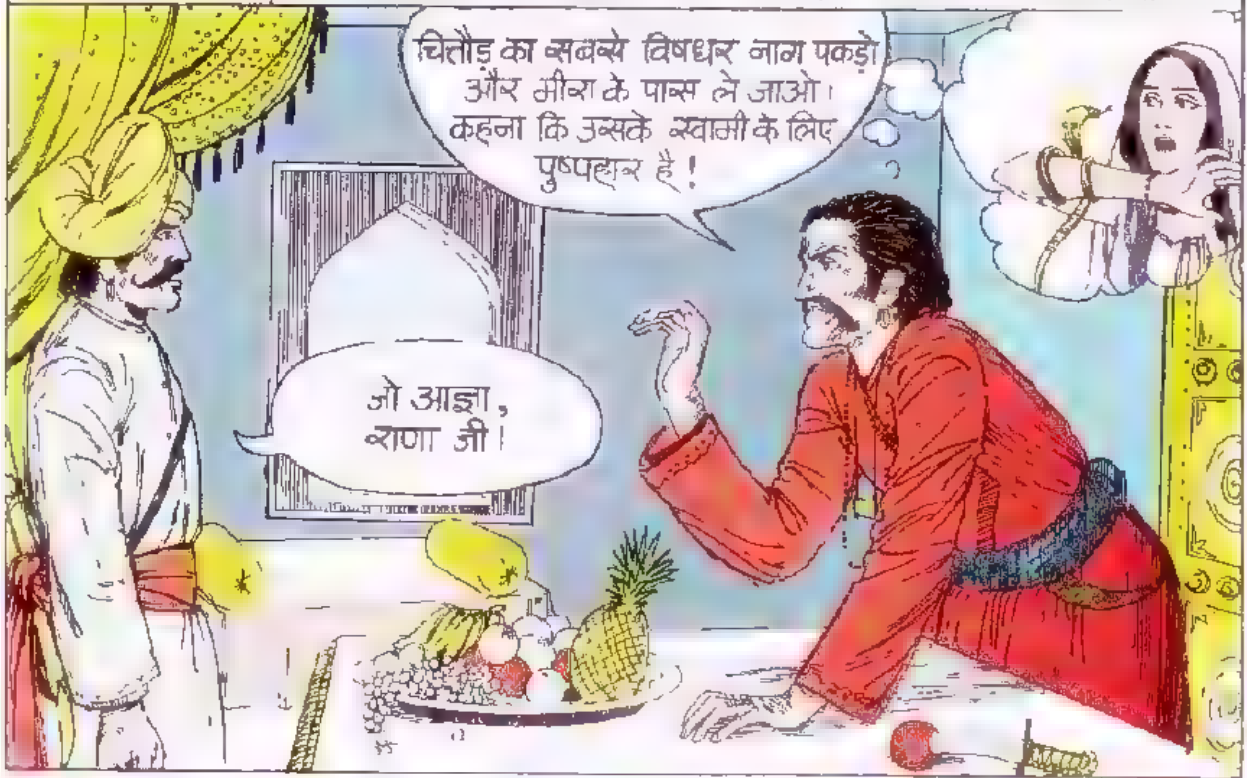 चित्तौड़ का सबसे विषधर नाग पकड़ो
और मीरा के पास ले जाओ।
कहना कि उसके स्वामी के लिए
पुष्पहार है!
जो आज्ञा,
राणा जी।